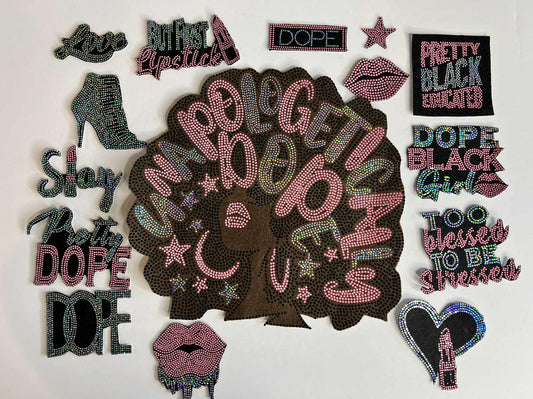 Love
BUT FIRST
lipstick
DOPE
PRETTY
BLACK
EDUCATED
UNAPOLOGETICALLY
DOPE
DOPE
BLACK
Girl
Slay
Pretty
DOPE
TOO
blessed
TO BE
stressed
DOPE